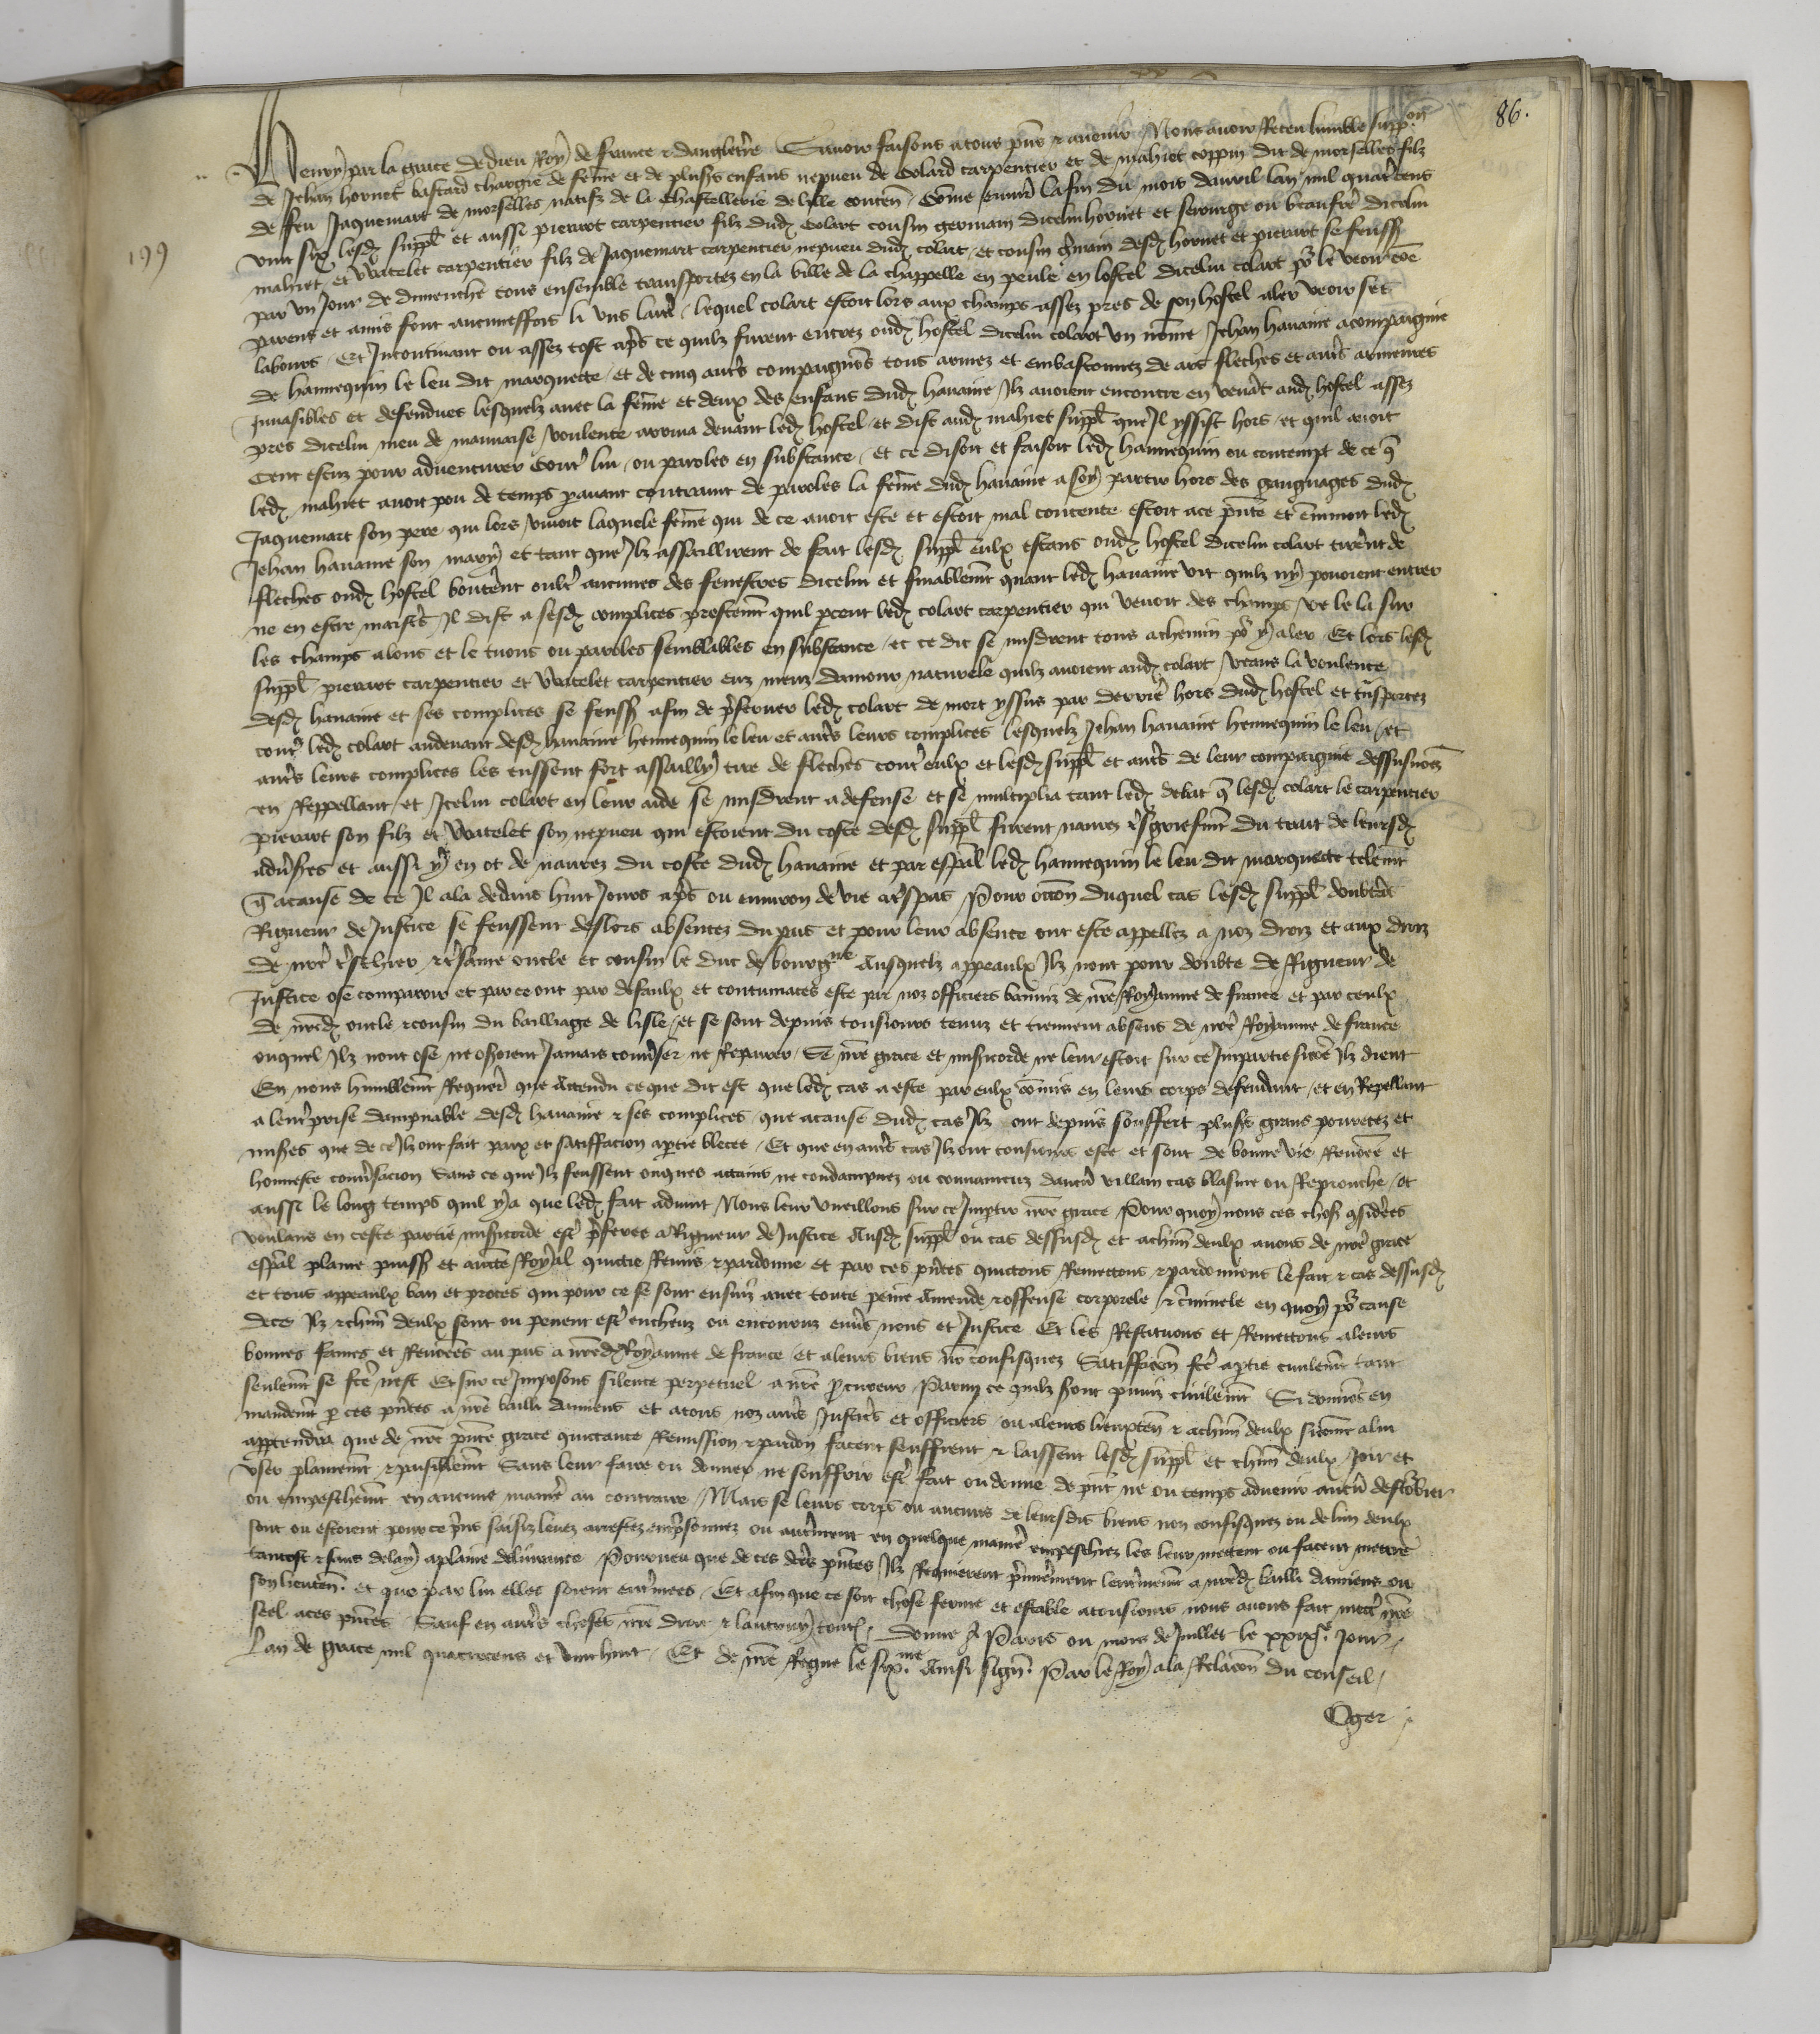 86.
199
Henry par la grace de dieu Roy de france & dangleterre Savoir faisons a tous pns & avenir Nous avoir Receu lumble supp.on
de Jehan hornet bastard chargie de feme et de plusrs enfans nepueu de Colard carpentier et de mahiet coppin dit de morselles filz
de feu Jaquemart de morselles natifz de la Chastellerie de lille conten. Come envir la fin du mois davril lan mil quatrcens
vint six lesd suppl et aussi pierart carpentier filz dud Colart cousin germain dicelui hornet et serourge ou beaufre dicelui
mahiet et Watelet carpentier filz de Jaquemart carpentier nepueu dud colart et cousin gmain desd hornet et pierart se feuss
par un Jour de dimenche tous ensemble transportez en la ville de la chappelle en peule en lostel dicelui colart po le veoir coe
parens et amis font aucuneffois li uns laut lequel colart estoit lors aux champs assez pres de son hostel aler veoir ses
labours Et Incontinant ou assez tost aps ce quilz furent entrez oud hostel dicelui colart un nome Jehan havaine acompaignie
de hannequin le leu dit marquette et de cinq auts compaignos tous armez et embastonnez de arcs fleches et auts armeures
Invasibles et defendues lesquelz avec la feme et deux des enfans dud havaine Ilz avoient encontre en venat aud hostel assez
pres dicelui meu de mauvaise voulente arriva devant led hostel et dist aud mahiet suppl que Il yssist hors et quil avoit
cent escuz pour adventurer Contr lui ou paroles en substance et ce disoit et faisoit led hannequin ou contempt de ce q
led mahiet avoit pou de temps pavant contraint de paroles la feme dud havaine a soy partir hors des gaugnages dud
Jaquemart son pere qui lors vivoit laquele feme qui de ce avoit este et estoit mal contente estoit a ce pnte et emmoit led
Jehan havaine son mary et tant que Ilz assaillirent de fait lesd suppl eulx estans oud hostel dicelui colart tirent de
fleches oud hostel bouterent oultr aucunes des fenestres dicelui et finablemt quant led havaine vit quilz ny povoient entrer
ne en estre maistrs Il dist a sesd complices prestemt quil pceut led colart carpentier qui venoit des champs ve le la sur
les champs alons et le tuons ou paroles semblables en substance et ce dit se misdrent tous a chemin po y aler Et lors lesd
suppl pierart carpentier et Watelet carpentier eulz meuz damour naturele quilz avoient aud colart veans la voulente
desd havaine et ses complices se feuss afin de pserver led colart de mort yssus par derrier hors dud hostel et tnsportez
cont led colart audevant desd havaine hennequin le leu et auts leurs complices lesquelz Jehan havaine hennequin le leu et
auts leurs complices les eussent fort assailly tire de fleches contr eulx et lesd suppl et auts de leur compaignie dessusnoez
en Reppellant et Icelui colart en leur aide se misdrent a defense et se multiplia tant led debat q lesd colart le carpentier
pierart son filz et Watelet son nepueu qui estoient du coste desd suppl furent navrez tsgriefmt du trait de leursd
advsres et aussi y en ot de navrez du coste dud havaine et par espal led hannequin le leu dit marquette telemt
q a cause de ce Il ala dedans huit Jours aps ou environ de vie a tspas Pour occon duquel cas lesd suppl doubtans
Rigueur de Justice se feussent deslors absentez du pais et pour leur absence ont este appellez a noz drois et aux drois
de nre tschier & tsame oncle et cousin le duc de bourgne Ausquelz appeaulx Ilz nont pour doubte de Rigueur de
Justice ose comparoir et par ce ont par defaulx et contumaces este par noz officiers banniz de nre Royaume de france et par ceulx
de nred oncle & cousin du bailliage de lisle et se sont depuis tousiours tenuz et tiennent absens de nre Royaume de france
ouquel Ilz nont ose ne oseroient Jamais conuser ne Reparer Se nre grace et misicorde ne leur estoit sur ce Impartie sicoe Ilz dient
En nous humblemt Requer que Attendu ce que dit est que led cas a este par eulx comis en leurs corps defendant et en Repellant
a lemprise dampnable desd havaine & ses complices que a cause dud cas Ilz ont depuis souffert plusrs grans povretez et
mises que de ce Ilz ont fait paix et satiffacion a ptie blecee Et que en auts cas Ilz ont tousiours este et sont de bonne vie Renoee et
honneste convsacion Sans ce que Ilz feussent onques attains ne condampnez ou convaincuz daucun villain cas blasme ou Reprouche et
aussi le long temps quil y a que led fait advint Nous leur vueillons sur ce Imptir nre grace Pour quoy nous ces chos qsiderees
voulans en ceste partie misicorde est pferee a Rigueur de Justice Ausd suppl ou cas dessusd et a chun deulx avons de nre grace
espal plaine puiss et aucte Royal quictie Remis & pardonne et par ces pntes quictons Remettons & pardonnons le fait & cas dessusd
et tous appeaulx ban et proces qui pour ce se sont ensuiz avec toute peine Amende & offense corporele & cminele en quoy po cause
de ce Ilz & chun deulx sont ou pevent est encheuz ou encouruz envs nous et Justice Et les Restituons et Remettons a leurs
bonnes fames et Renoees au pais a nred Royaume de france et a leurs biens no confisquez Satiffacon fce a ptie civilemt tant
seulemt se fce nest Et sur ce Imposons silence perpetuel a nre pcureur Parmi ce quilz sont puniz civilemt Si donnos en
mandemt p ces pntes a nre bailli damiens et a tous noz auts Justics et officiers ou a leurs lieuxten & a chun deulx sicome a lui
apptendra que de nre pnte grace quictance Remission & pardon facent seuffrent & laissent lesd suppl et chun deulx Joir et
user plainemt & paisiblemt Sans leur faire ou donner ne souffrir est fait ou donne de pnt ne ou temps advenir aucun destobier
ou empeschemt en aucune manier au contraire Mais se leurs corps ou aucuns de leursdis biens non confisquez ou de lun deulx
sont ou estoient pour ce pns saisiz levez arrestez empsonnez ou autrement en quelque manier empeschiez les leur mettent ou facent mettre
tantost & sans delay a plaine delivrance Pourveu que de ces ltres pntes Ilz Requierent pmierement lenterinemt a nred bailli damiens ou
son lieuten. et que par lui elles soient entinees Et afin que ce soit chose ferme et estable a tousiours nous avons fait mett nre
seel a ces pntes Sauf en auts choses nre droit & lautruy tout. Donne A Paris ou mois de Juillet le xxixe. Jour
Lan de grace mil quatrecens et vint huit Et de nre Regne le sixme Ainsi sign. Par le Roy a la Relacon du conseil
Oger